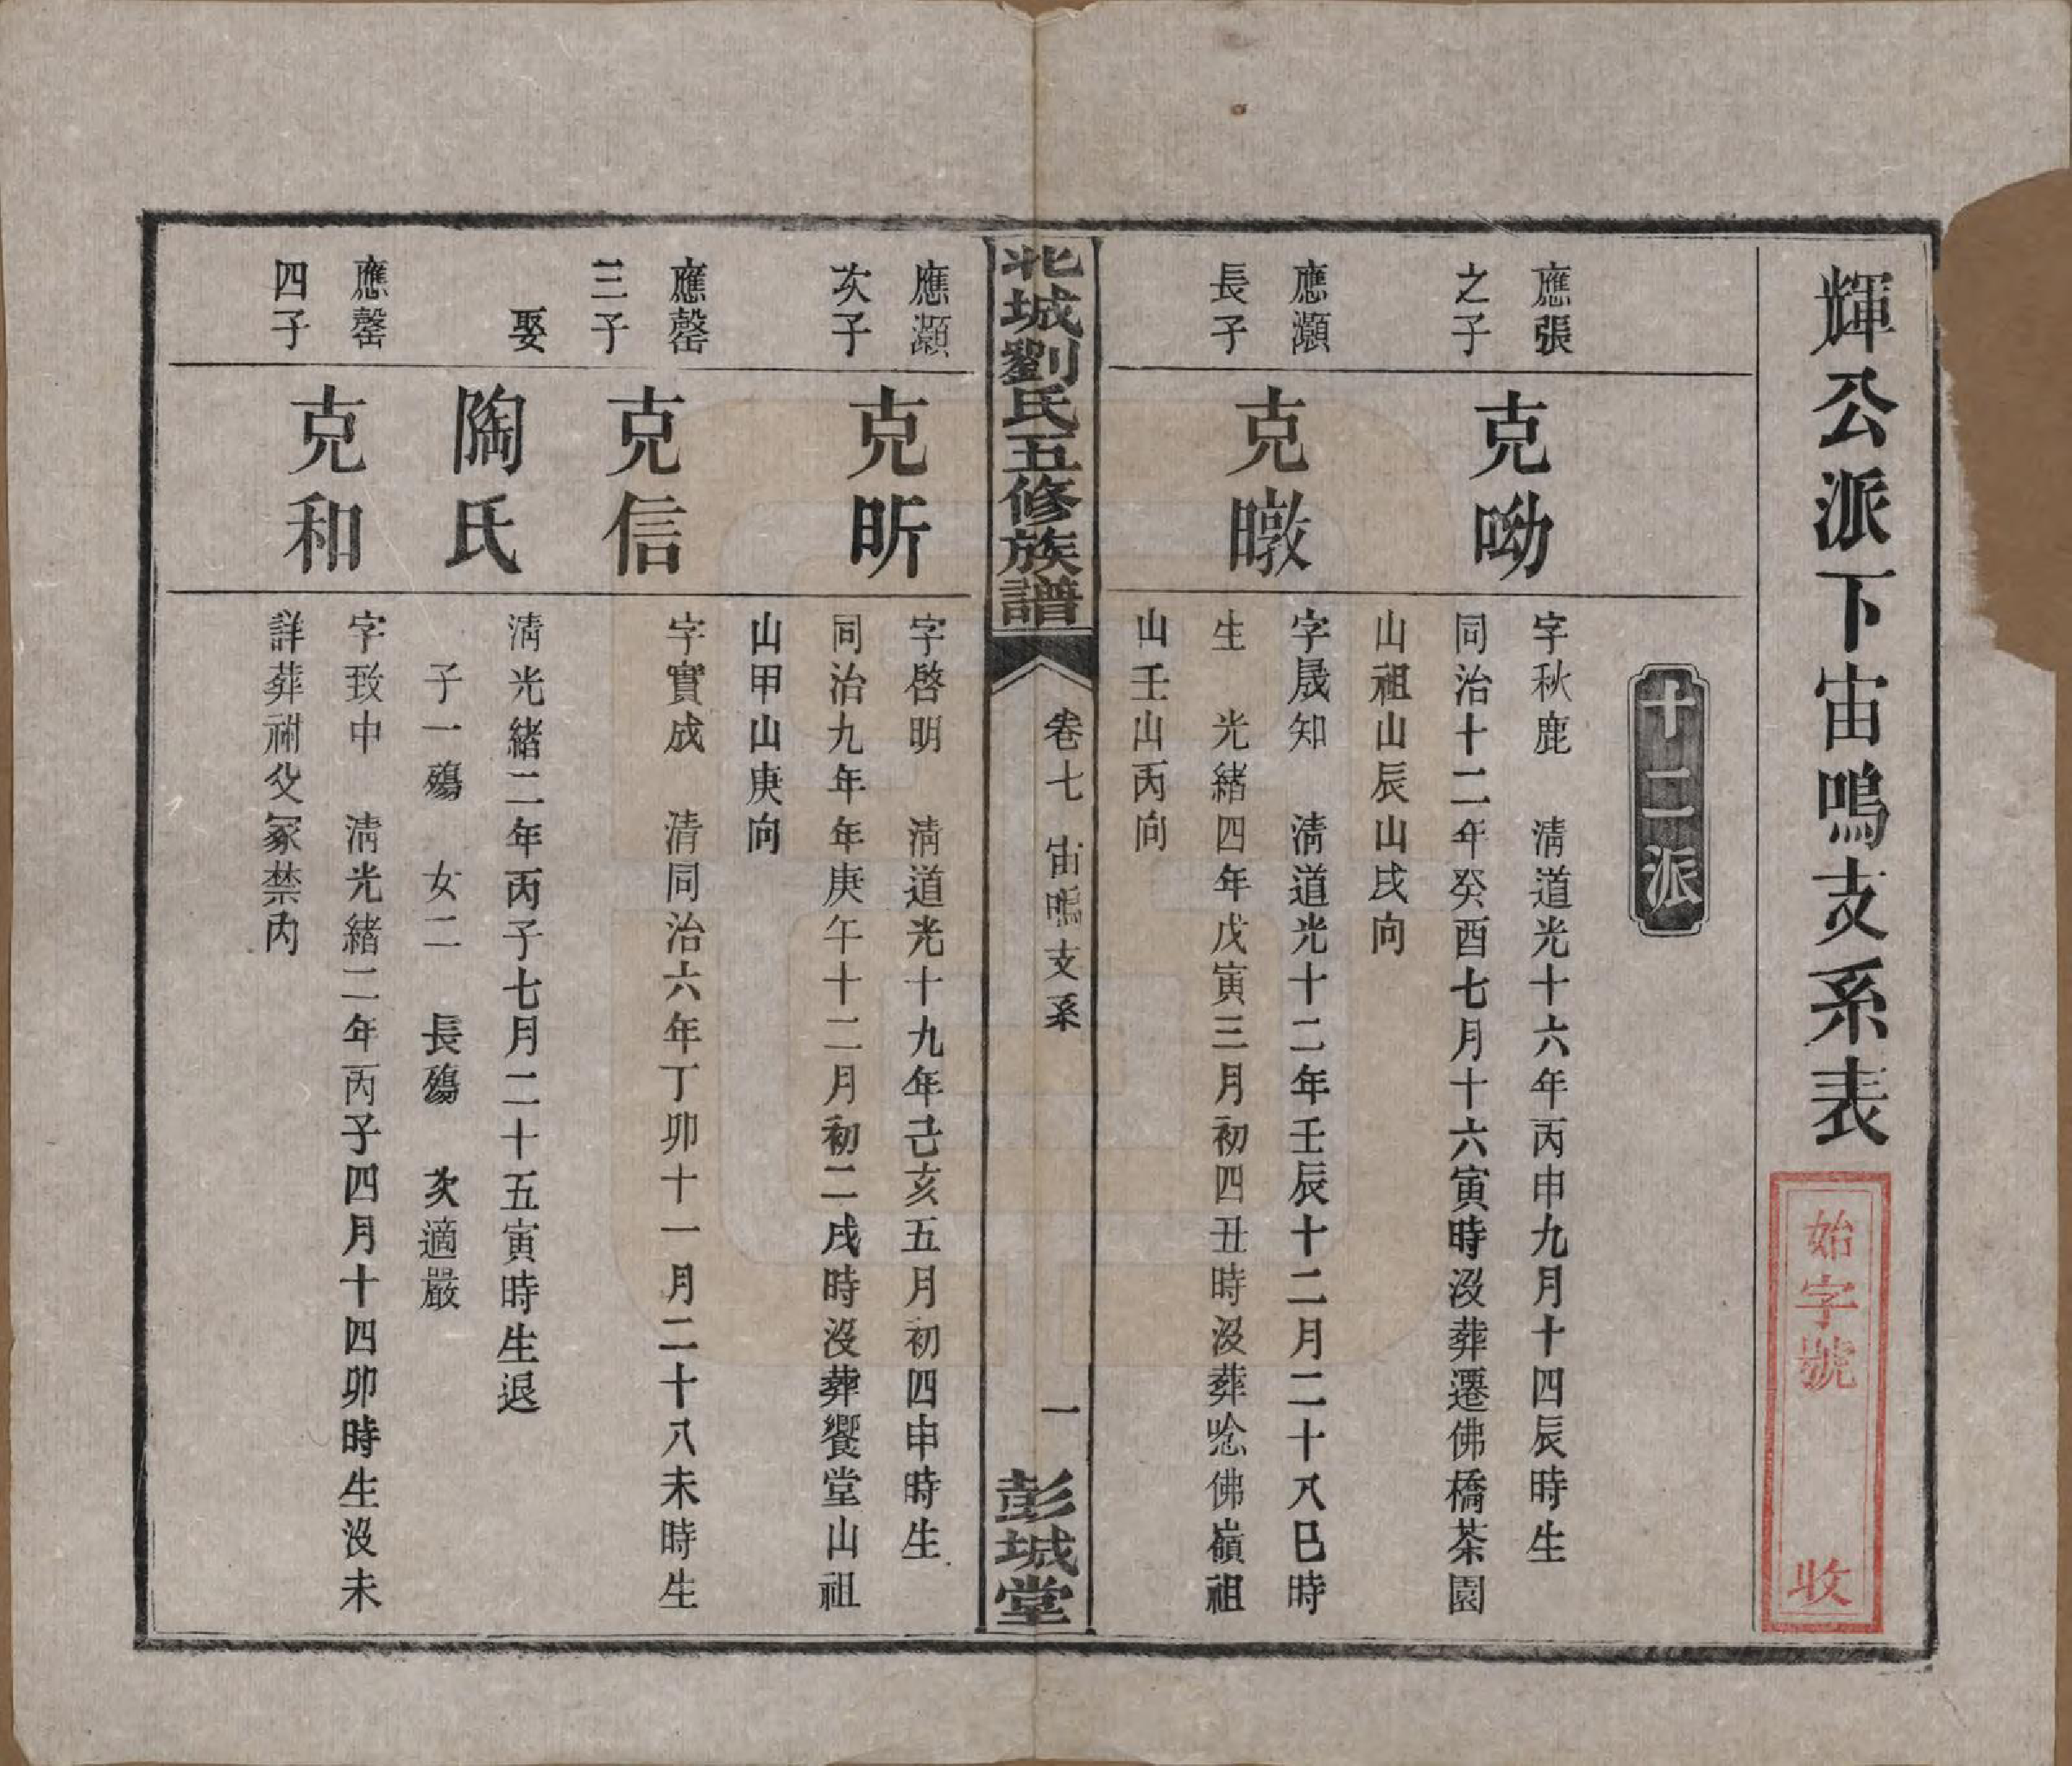 輝公派下宙鳴支系表
始字號 收
十二派
應張
之子
克呦
字秋鹿 清道光十六年丙申九月十四辰時生
同治十二年癸酉七月十六寅時沒葬遷佛橋茶園
山祖山辰山戌向
應灝
長子
克暾
字晟知 清道光十二年壬辰十二月二十八巳時
生 光緒四年戊寅三月初四丑時沒葬唸佛嶺祖
山壬山丙向
北城劉氏五修族譜
卷七 宙鳴支系
一
彭城堂
應灝
次子
克昕
字啓明 清道光十九年己亥五月初四申時生
同治九年年庚午十二月初二戌時沒葬饗堂山祖
山甲山庚向
應罄
三子
克信
字實成 清同治六年丁卯十一月二十八未時生
娶
陶氏
清光緒二年丙子七月二十五寅時生退
子一殤 女二 長殤 次適嚴
應罄
四子
克和
字致中 清光緒二年丙子四月十四卯時生沒未
詳葬祔父冢禁內